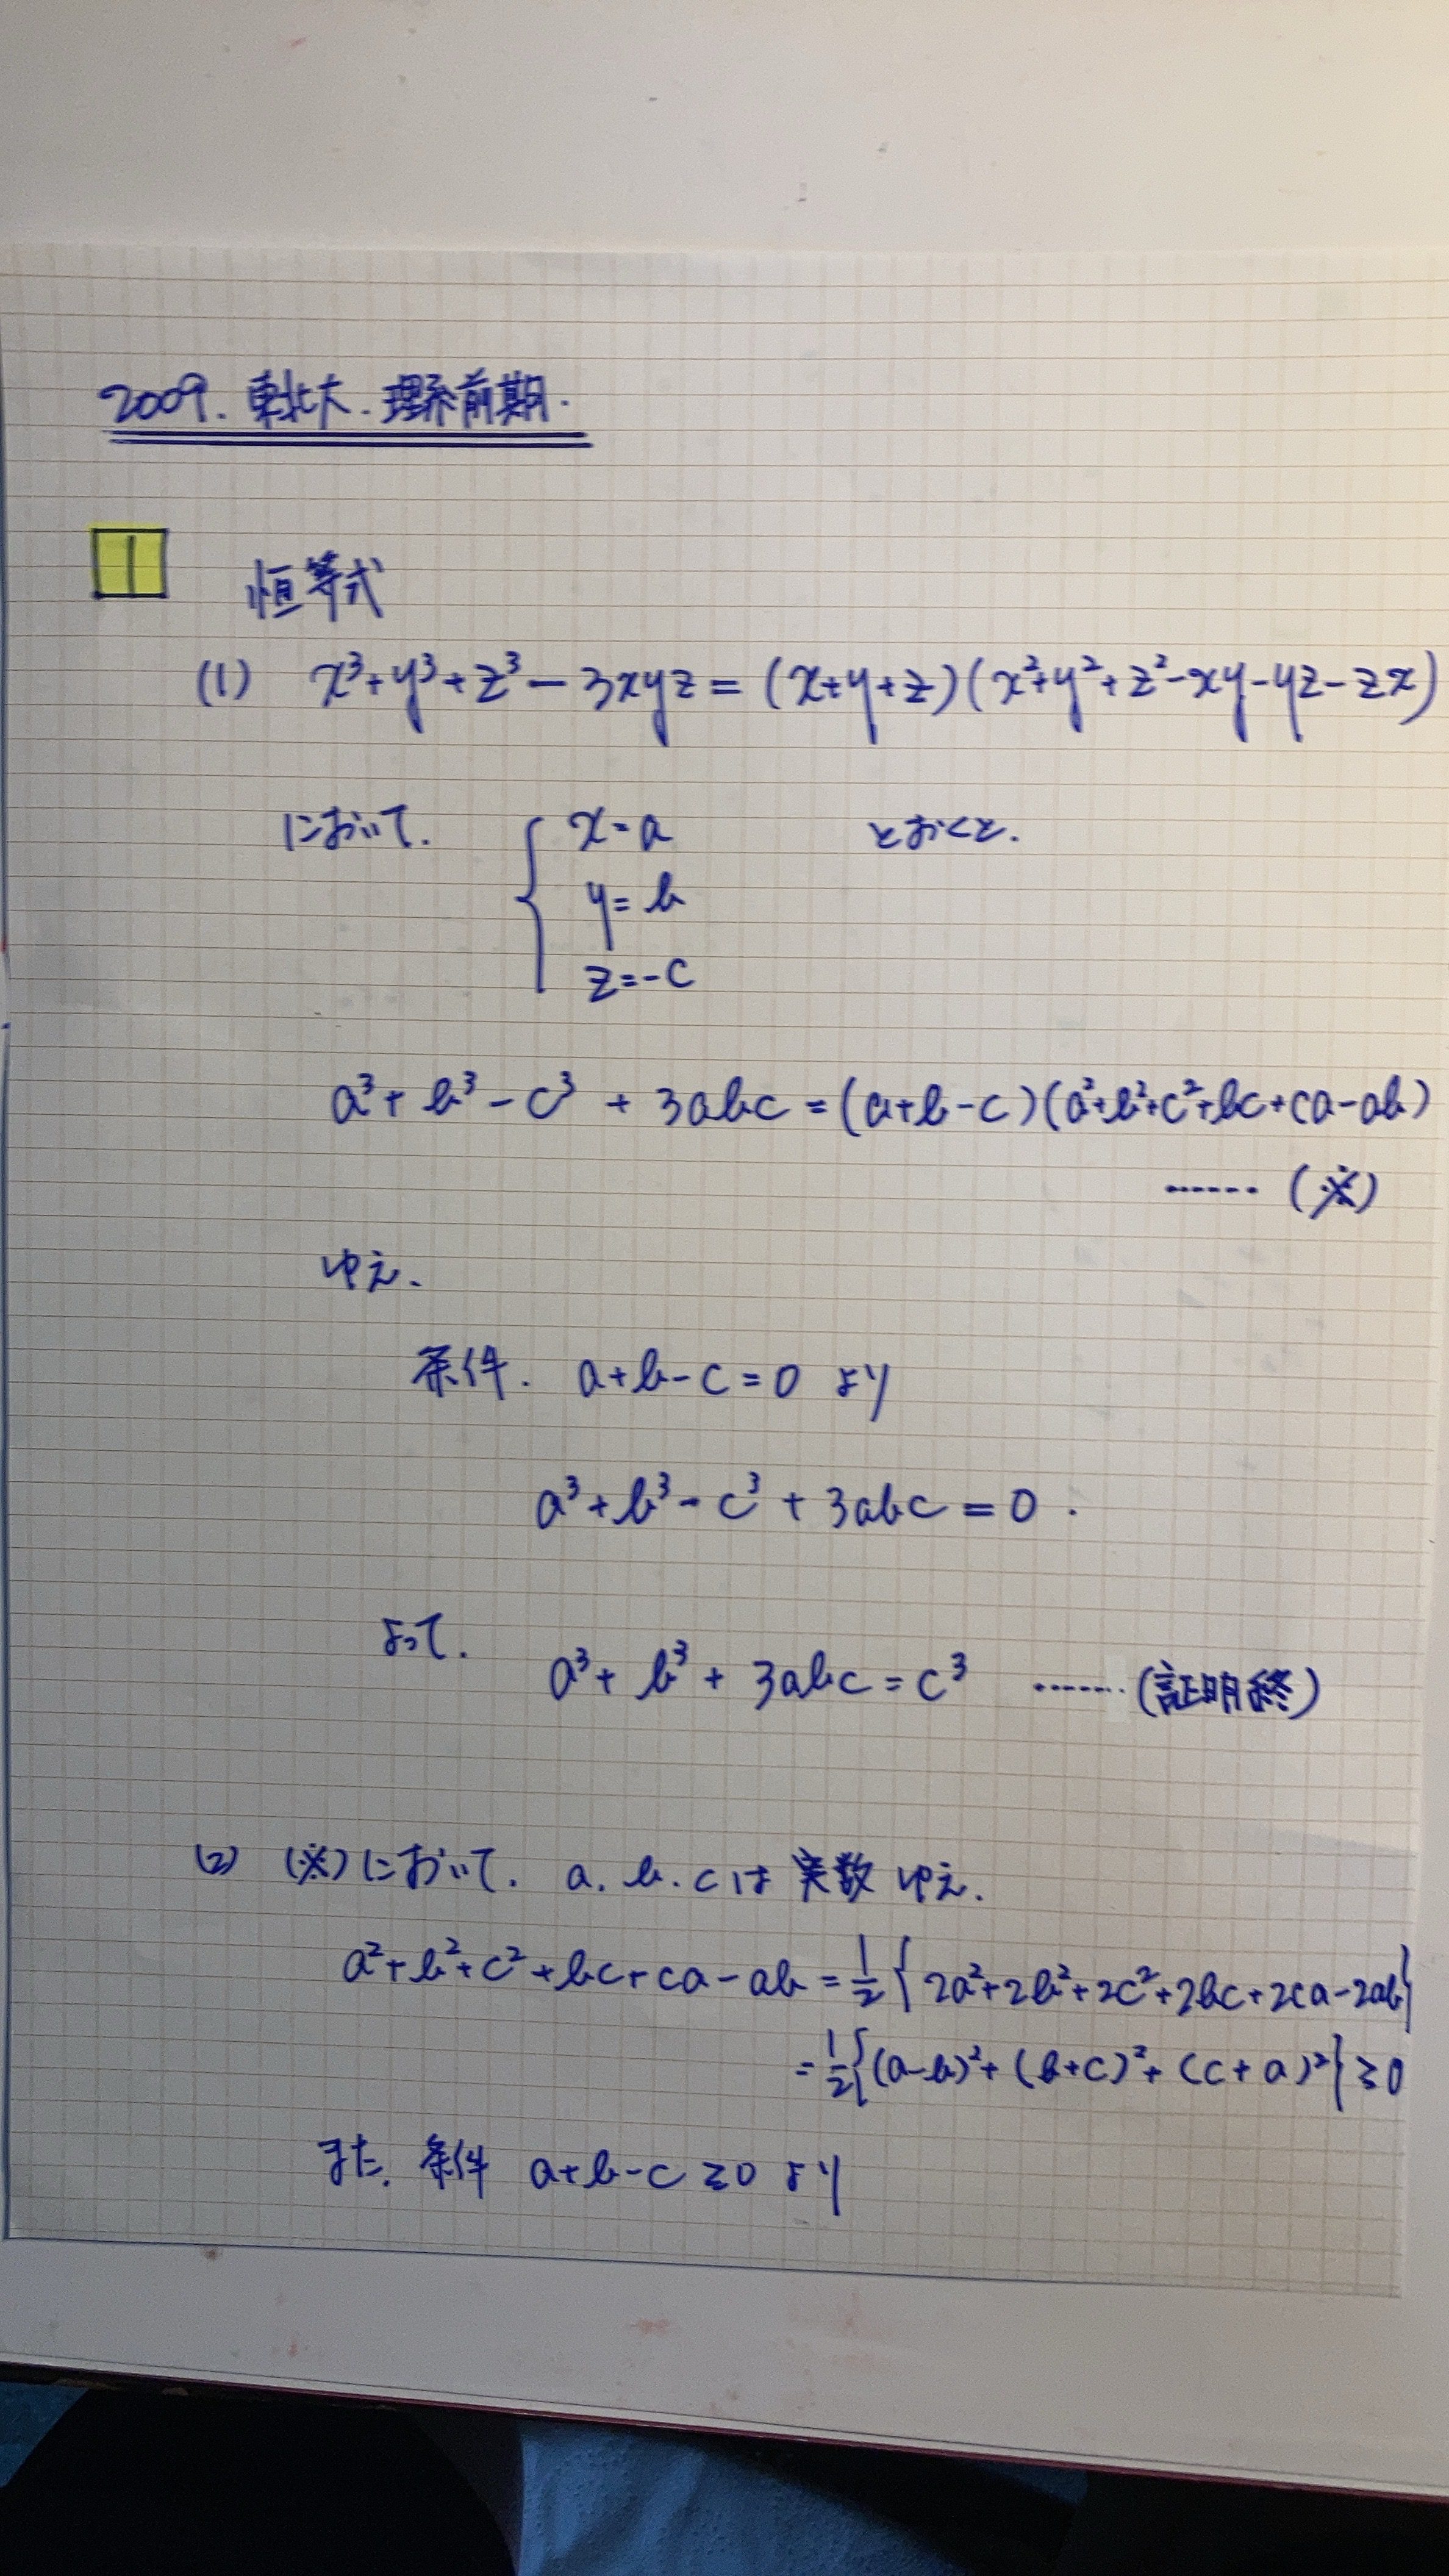 2009. 東北大. 理系前期.
1
恒等式
(1) x³+y³+z³-3xyz=(x+y+z)(x²+y²+z²-xy-yz-zx)
において. { x=a とおくと.
y=b
z=-c
a³+b³-c³+3abc=(a+b-c)(a²+b²+c²+bc+ca-ab)
…… (※)
ゆえ.
条件. a+b-c=0 より
a³+b³-c³+3abc=0.
よって.
a³+b³+3abc=c³ ……(証明終)
(2) (※)において. a.b.cは実数ゆえ.
a²+b²+c²+bc+ca-ab=1/2{2a²+2b²+2c²+2bc+2ca-2ab}
=1/2{(a-b)²+(b+c)²+(c+a)²}≧0
また. 条件 a+b-c≧0 より